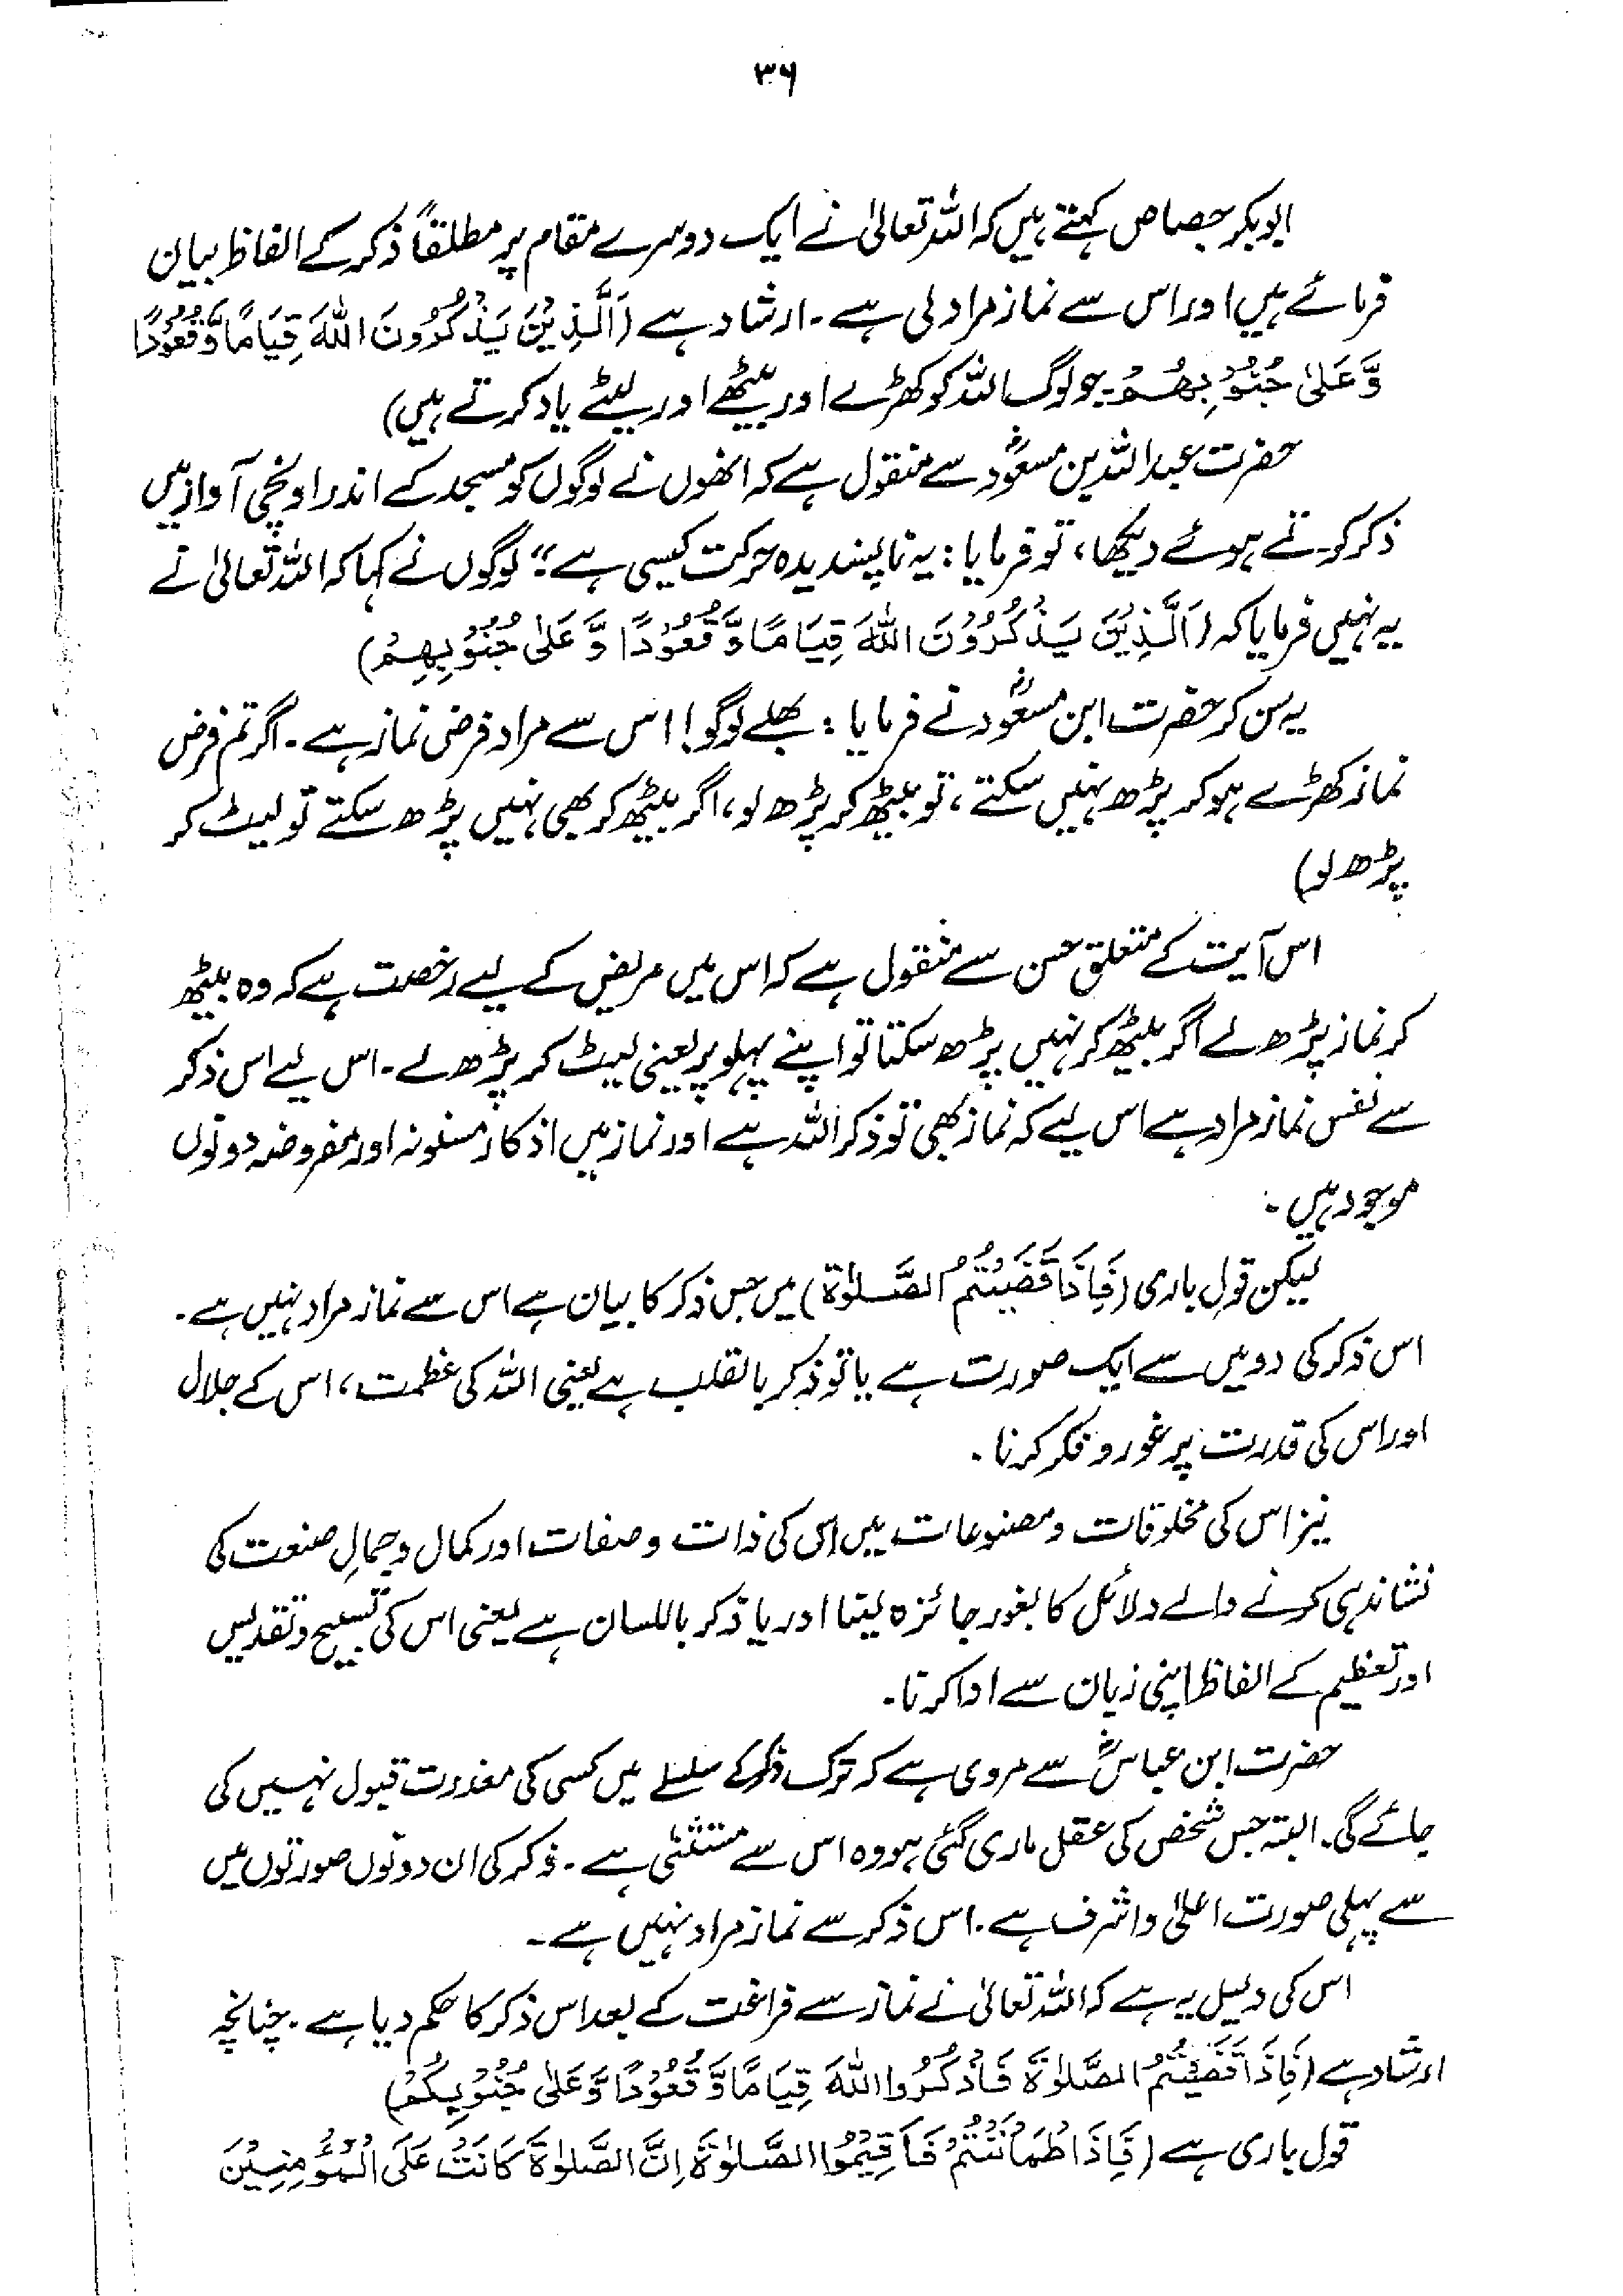 ۳۶
ابوبکر جصاص کہتے ہیں کہ اللہ تعالیٰ نے ایک دوسرے مقام پر مطلقاً ذکر کے الفاظ بیان
فرمائے ہیں اور اس سے نماز مراد لی ہے۔ ارشاد ہے (اَلَّذِيْنَ يَذْكُرُوْنَ اللّٰهَ قِيَامًا وَّقُعُوْدًا
وَّعَلٰی جُنُوْبِهِمْ۔ جو لوگ اللہ کو کھڑے اور بیٹھے اور لیٹے یاد کرتے ہیں)
حضرت عبداللہ بن مسعودؓ سے منقول ہے کہ انھوں نے لوگوں کو مسجد کے اندر اونچی آواز میں
ذکر کرتے ہوئے دیکھا، تو فرمایا: یہ ناپسندیدہ حرکت کیسی ہے“ لوگوں نے کہا کہ اللہ تعالیٰ نے
یہ نہیں فرمایا کہ (اَلَّذِيْنَ يَذْكُرُوْنَ اللّٰهَ قِيَامًا وَّ قُعُوْدًا وَّ عَلٰی جُنُوْبِهِمْ)
یہ سن کر حضرت ابن مسعودؓ نے فرمایا: بھلے لوگو! اس سے مراد فرض نماز ہے۔ اگر تم فرض
نماز کھڑے ہو کر پڑھ نہیں سکتے، تو بیٹھ کر پڑھ لو، اگر بیٹھ کر بھی نہیں پڑھ سکتے تو لیٹ کر
پڑھ لو)
اس آیت کے متعلق حسن سے منقول ہے کہ اس میں مریض کے لیے رخصت ہے کہ وہ بیٹھ
کر نماز پڑھ لے اگر بیٹھ کر نہیں پڑھ سکتا تو اپنے پہلو پر یعنی لیٹ کر پڑھ لے۔ اس لیے اس ذکر
سے نفس نماز مراد ہے اس لیے کہ نماز بھی تو ذکر اللہ ہے اور نماز میں اذکار مسنونہ اور مفروضہ دونوں
موجود ہیں۔
لیکن قولِ باری (فَاِذَا قَضَيْتُمُ الصَّلٰوةَ) میں جس ذکر کا بیان ہے اس سے نماز مراد نہیں ہے۔
اس ذکر کی دو میں سے ایک صورت ہے یا تو ذکر بالقلب ہے یعنی اللہ کی عظمت، اس کے جلال
اور اس کی قدرت پر غور و فکر کرنا۔
نیز اس کی مخلوقات و مصنوعات میں اس کی ذات و صفات اور کمال و جمالِ صنعت کی
نشاندہی کرنے والے دلائل کا بغور جائزہ لینا اور یا ذکر باللسان ہے یعنی اس کی تسبیح و تقدیس
اور تعظیم کے الفاظ اپنی زبان سے ادا کرنا۔
حضرت ابن عباسؓ سے مروی ہے کہ ترک ذکر کے سلسلے میں کسی کی معذرت قبول نہیں کی
جائے گی۔ البتہ جس شخص کی عقل ماری گئی ہو وہ اس سے مستثنٰی ہے۔ ذکر کی ان دونوں صورتوں میں
سے پہلی صورت اعلیٰ و اشرف ہے۔ اس ذکر سے نماز مراد نہیں ہے۔
اس کی دلیل یہ ہے کہ اللہ تعالیٰ نے نماز سے فراغت کے بعد اس ذکر کا حکم دیا ہے۔ چنانچہ
ارشاد ہے (فَاِذَا قَضَيْتُمُ الصَّلٰوةَ فَاذْكُرُوا اللّٰهَ قِيَامًا وَّ قُعُوْدًا وَّعَلٰی جُنُوْبِكُمْ)
قول باری ہے (فَاِذَا اطْمَأْنَنْتُمْ فَاَقِيْمُوا الصَّلٰوةَ اِنَّ الصَّلٰوةَ كَانَتْ عَلَی الْمُؤْمِنِيْنَ